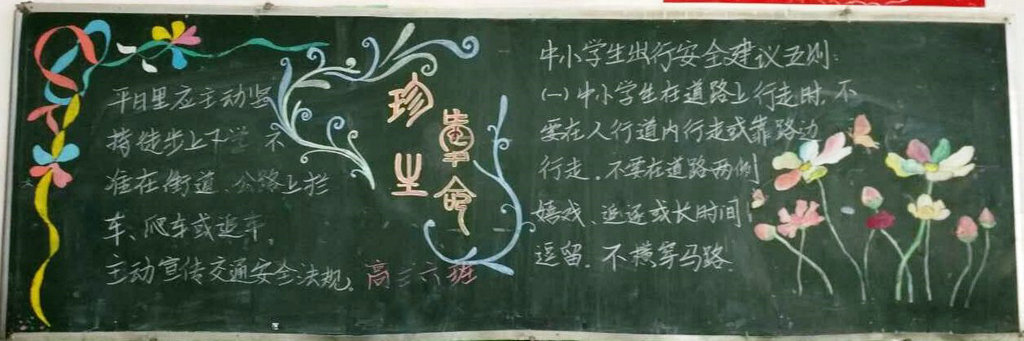 平日里应主动坚
持徒步上下学 不
准在街道、公路上拦
车、爬车或追车,
主动宣传交通安全法规。高三六班
珍惜生命
中小学生出行安全建议五则:
(一)中小学生在道路上行走时,不
要在人行道内行走或靠路边
行走,不要在道路两侧
嬉戏、追逐或长时间
逗留,不横穿马路